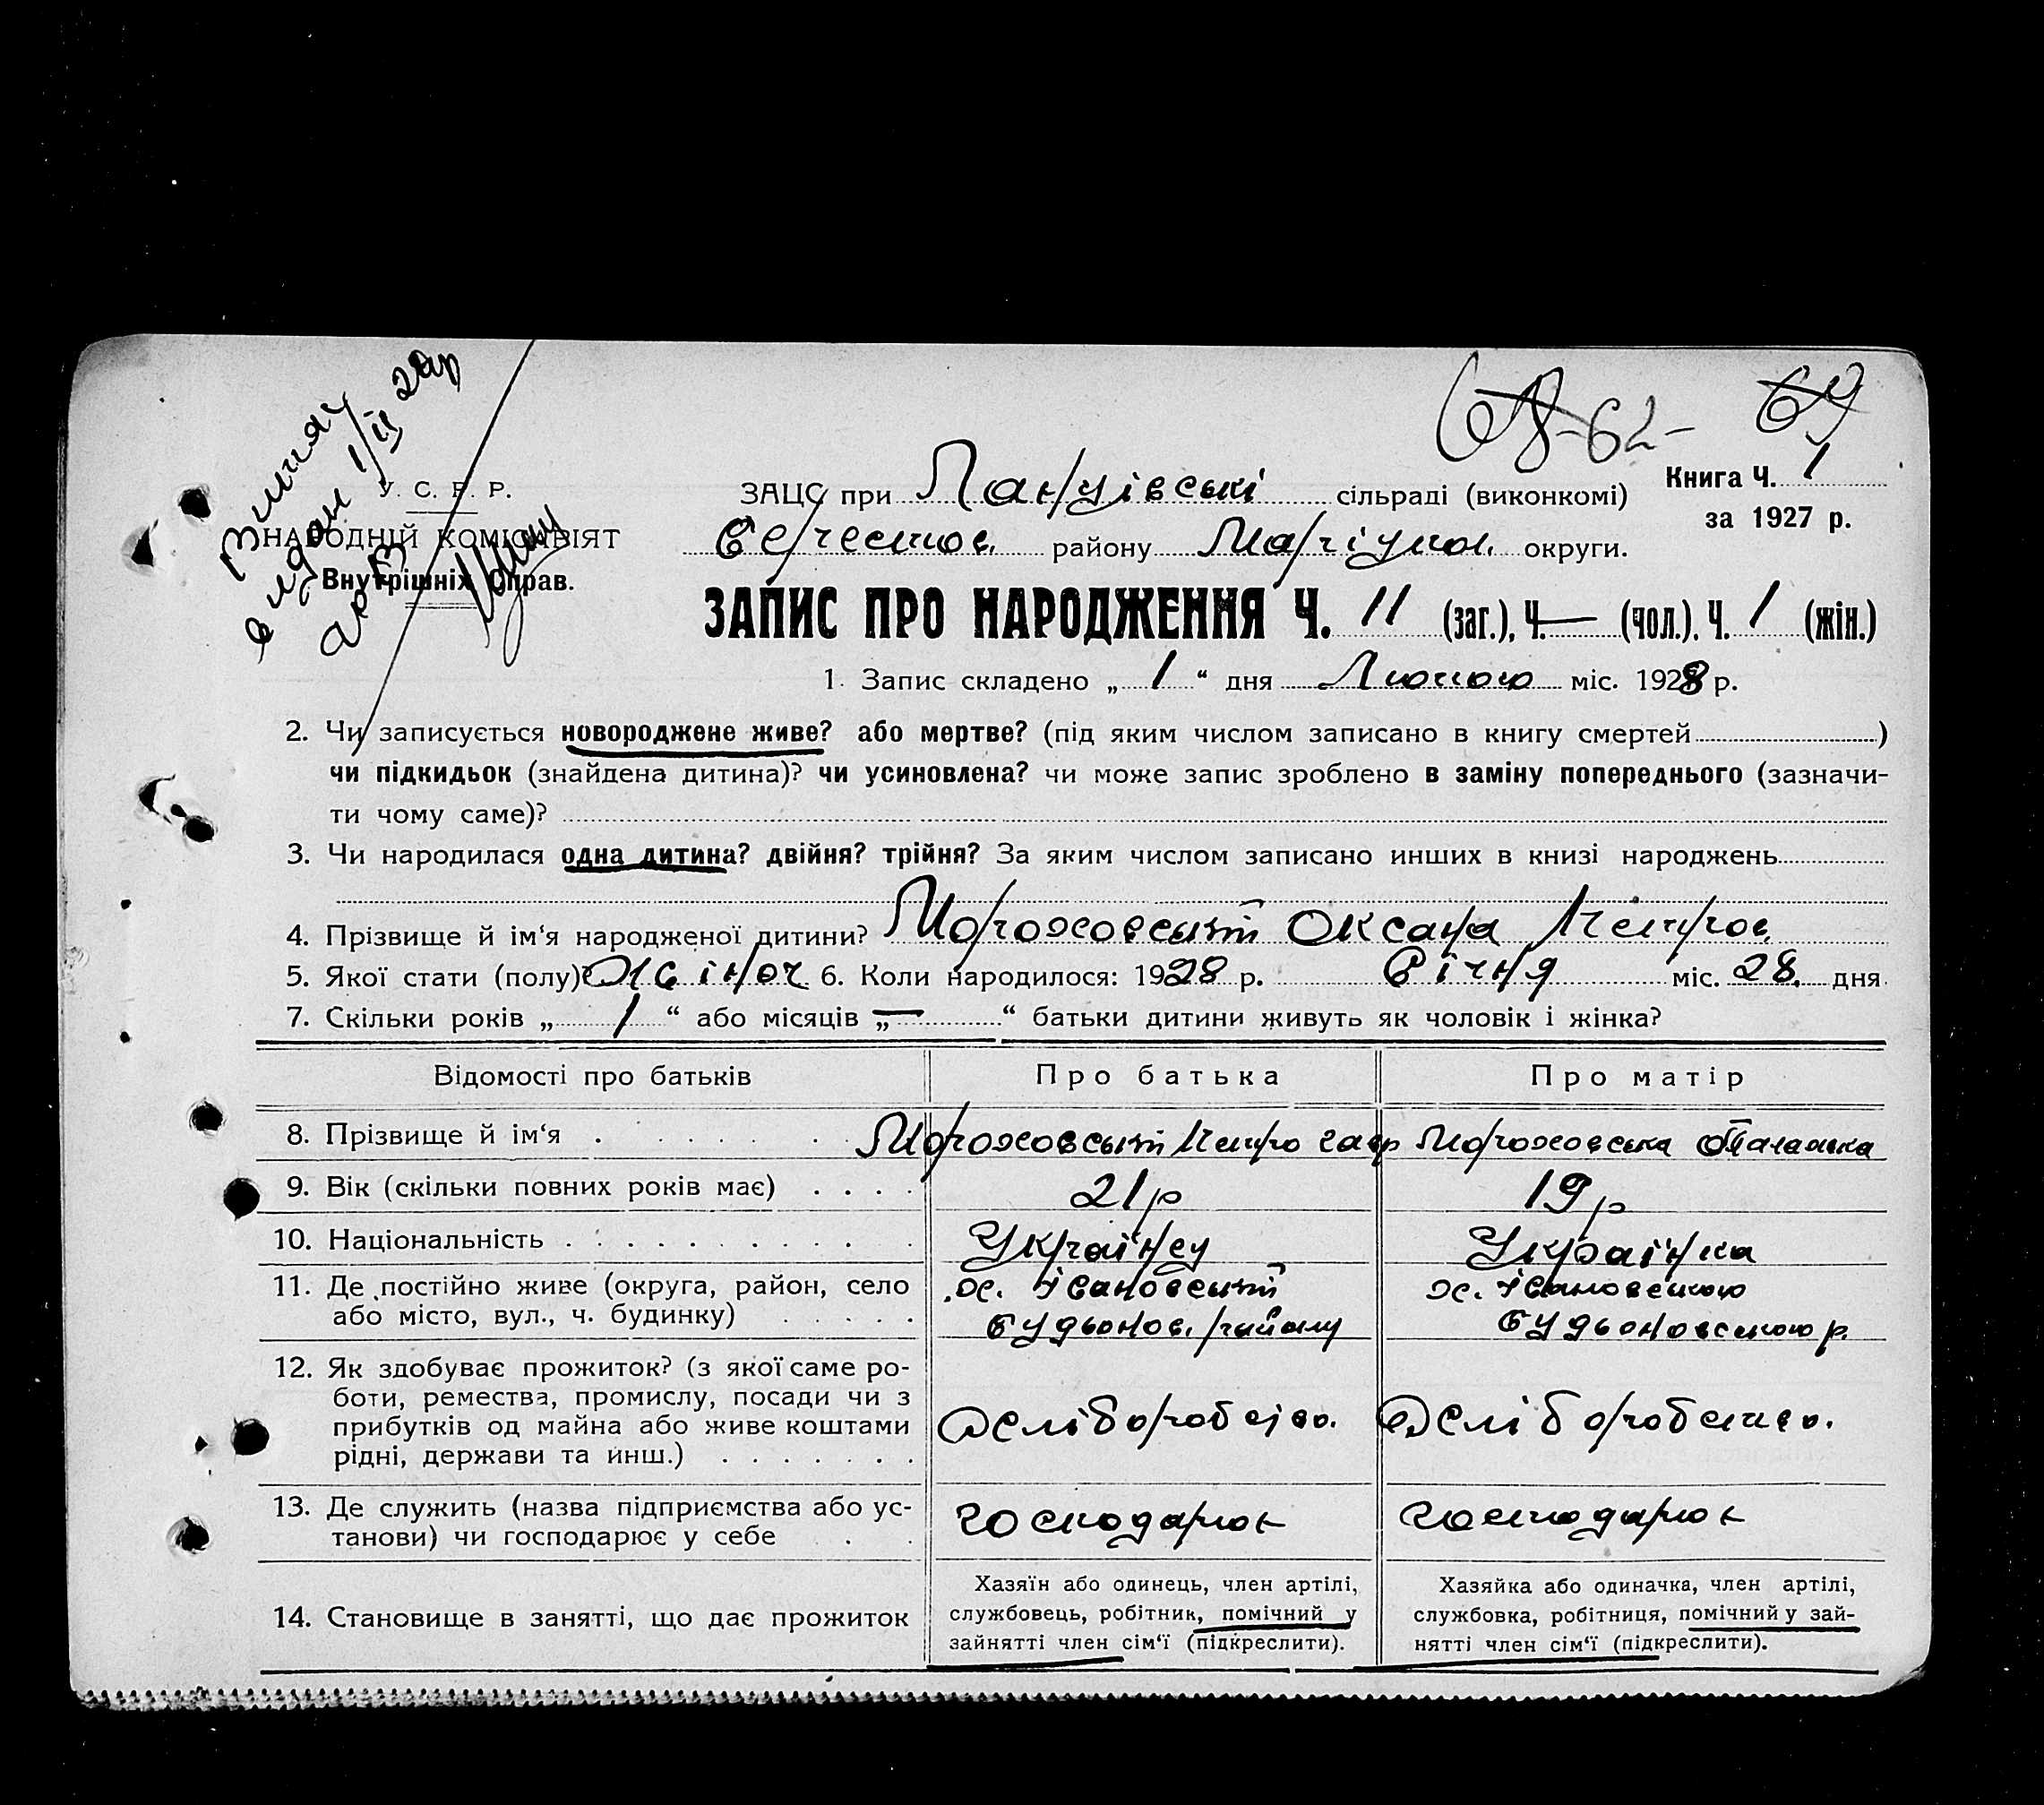 68-62- 69
Витяг
видан 1/II 28р
У. С. Р. Р.
ЗАЦС при Ланцівські сільраді (виконкомі) Книга Ч. 1
за 1927 р.
НАРОДНІЙ КОМІСАРІЯТ
району Маріупол. округи.
Внутрішніх Справ.
ЗАПИС ПРО НАРОДЖЕННЯ Ч. 11 (заг.), Ч. — (чол.). Ч. 1 (жін.)
1. Запис складено „ 1 “ дня Лютого міс. 1928 р.
2. Чи записується новороджене живе? або мертве? (під яким числом записано в книгу смертей )
чи підкидьок (знайдена дитина)? чи усиновлена? чи може запис зроблено в заміну попереднього (зазначи-
ти чому саме)?
3. Чи народилася одна дитина? двійня? трійня? За яким числом записано инших в книзі народжень
4. Прізвище й ім‘я народженої дитини? Морожовський Оксана Петров.
5. Якої стати (полу)? Жіноч 6. Коли народилося: 1928 р. Січня міс. 28. дня
7. Скільки років „ 1 “ або місяців „ — “ батьки дитини живуть як чоловік і жінка?
Відомості про батьків Про батька Про матір
8. Прізвище й ім‘я Морожовський Петро Гавр Морожовська Наталка
9. Вік (скільки повних років має) 21р 19р
10. Національність Українец Українка
11. Де постійно живе (округа, район, село х. Івановский х. Івановского
або місто, вул., ч. будинку) Будьонов. району Будьоновского р.
12. Як здобуває прожиток? (з якої саме ро-
боти, ремества, промислу, посади чи з
прибутків од майна або живе коштами Хліборобство. Хліборобство.
рідні, держави та инш.)
13. Де служить (назва підприємства або ус- господарює господарює
танови) чи господарює у себе
Хазяїн або одинець, член артілі, Хазяйка або одиначка, член артілі,
14. Становище в занятті, що дає прожиток службовець, робітник, помічний у службовка, робітниця, помічний у зай-
зайнятті член сім‘ї (підкреслити). нятті член сім‘ї (підкреслити).